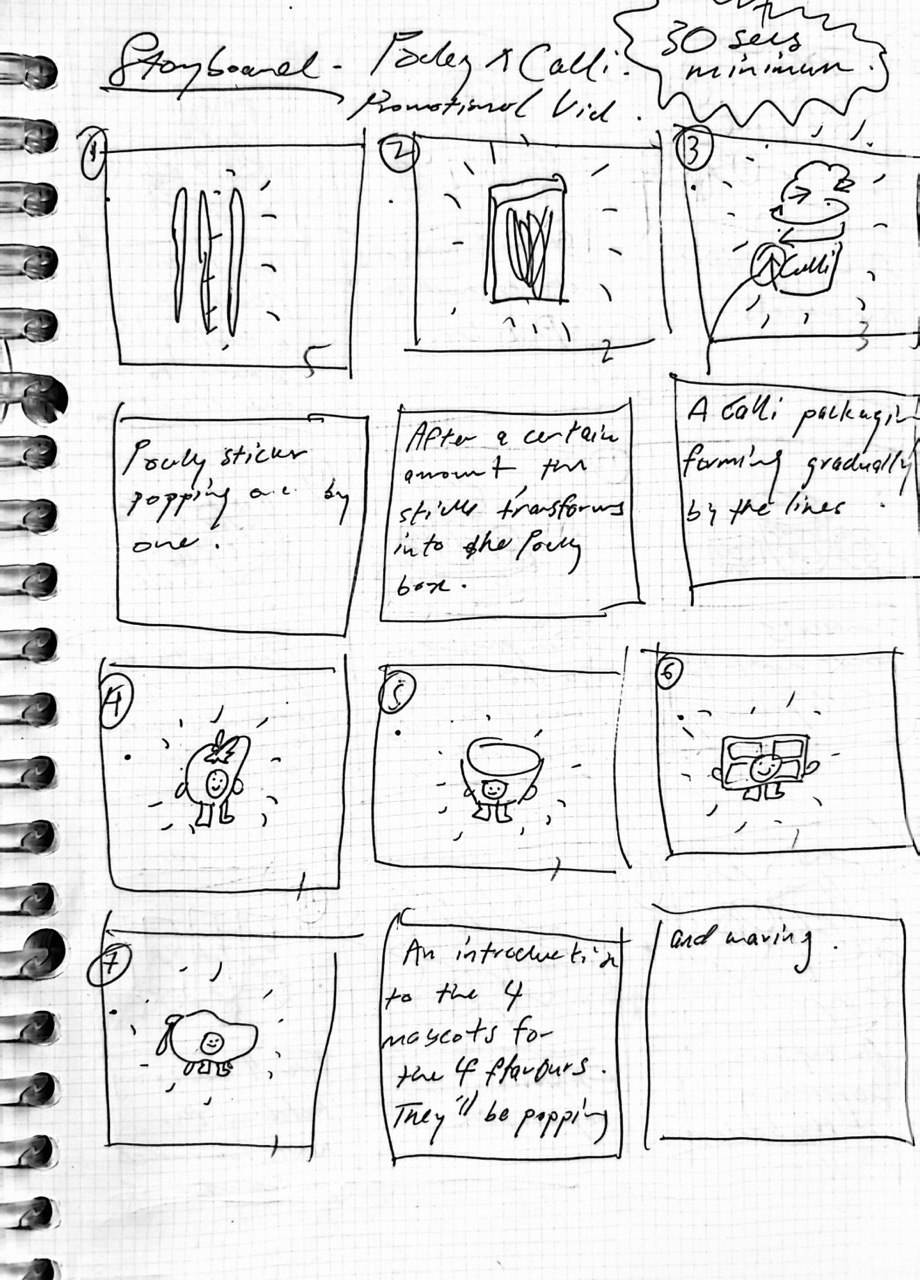 Storyboard - Pocky x Calli.
Promotional Vid.
30 secs
minimum.
1
2
3
Calli
5
2
3
Pocky sticks
popping one by
one.
After a certain
amount, the
sticks transforms
into the Pocky
box.
A Calli packagin
forming gradually
by the lines.
4
5
6
1
1
1
7
1
An introduction
to the 4
mascots for
the 4 flavours.
They'll be popping
and waving.